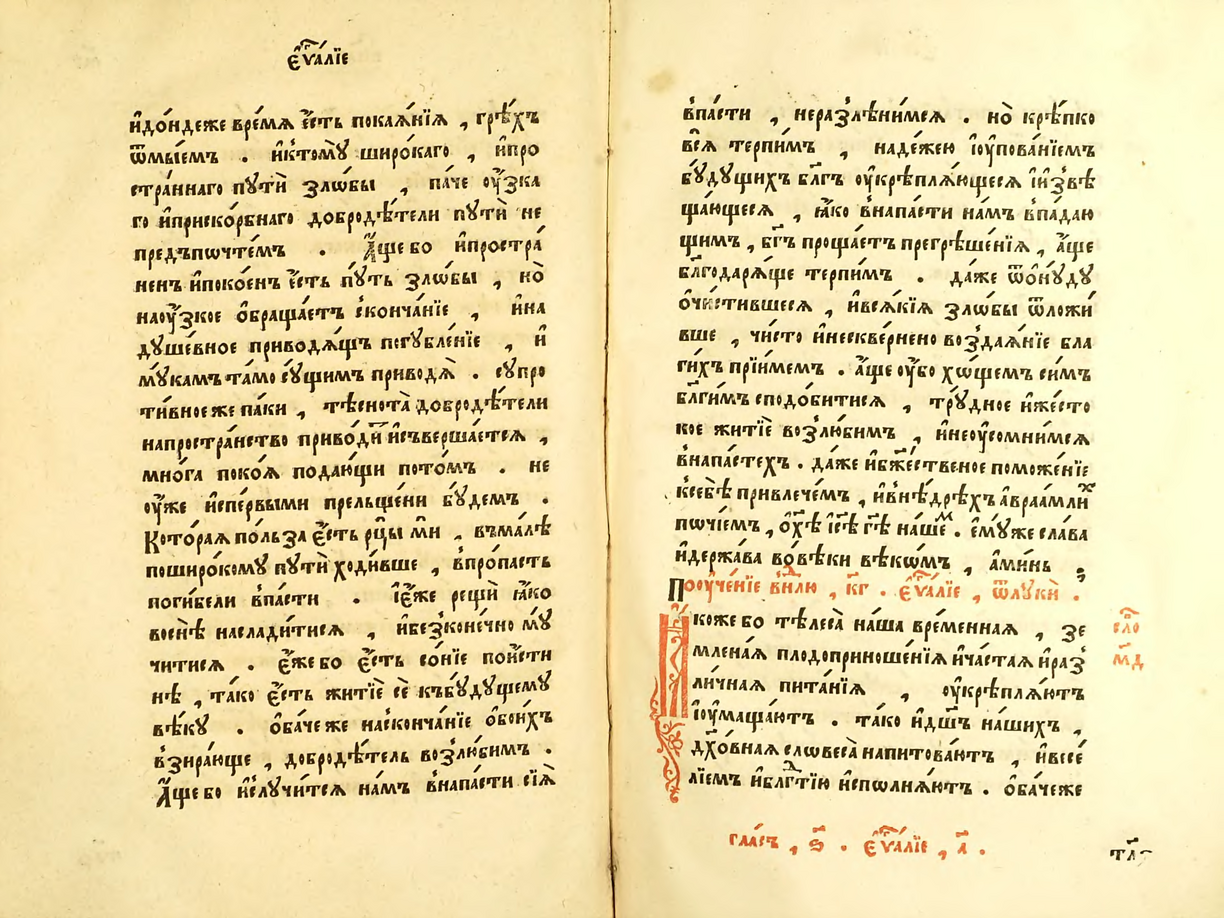 є҆ѵⷢ҇а́лїе
и҆до́ндеже вре́мѧ є҆́сть покаѧ́нїѧ , грѣ́хъ
ѿмы́емъ . и҆ктомꙋ̀ широ́каго , и҆про
стра́ннаго пꙋтѝ ѕло́бы , па́че оу҆́зка
го и҆приско́рбнаго добродѣ́тели пꙋтѝ не
предъпѡчте́мъ . А҆́ще бо и҆простра́
ненъ и҆поко́енъ є҆́сть пꙋ́ть ѕло́бы , но̀
наоу҆́зкое ѡ҆браща́етъ сконча́нїе , и҆на
дꙋше́вное приводѧ́щъ погꙋбле́нїе , и҆
мꙋ́камъ та́мо сꙋ́щимъ приводѧ̀ . сꙋпро
ти́вное же па́ки , тѣснота̀ добродѣ́тели
напростра́нство приво́ди и҆съверша́етсѧ ,
мно́га поко́ѧ подаю́щи пото́мъ . не
оу҆́же и҆пе́рвыми прельще́ни бꙋ́демъ .
Кото́раѧ по́льза є҆́сть рцы́ ми , въма́лѣ
поширо́комꙋ пꙋтѝ ходи́вше , впро́пасть
поги́бели впа́сти . І҆є҆́же рещѝ ꙗ҆́ко
во снѣ̀ наслади́тисѧ , и҆безконе́чно мꙋ́
читисѧ . є҆́же бо є҆́сть со́нїе пои҆́сти
нѣ , та́ко є҆́сть житїѐ сѐ къбꙋ́дꙋщемꙋ
вѣ́кꙋ . ѻ҆ба́че же насконча́нїе ѻ҆бои́хъ
взира́юще , добродѣ́тель возлю́бимъ .
А҆́ще бо и҆слꙋчи́тсѧ на́мъ внапа́сти сїѧ̀
впа́сти , неразлѣни́мсѧ . но̀ крѣ́пко
всѧ̀ терпи́мъ , наде́жею і҆оу҆пова́нїемъ
бꙋ́дꙋщихъ бл҃гъ оу҆крѣплѧ́ющесѧ і҆и҆звѣ
ща́ющесѧ , ꙗ҆́ко внапа́сти на́мъ впа́даю
щимъ , бг҃ъ проща́етъ прегрѣше́нїѧ , а҆́ще
бл҃годарѧ́ще терпи́мъ . да́же ѿѻнꙋ́дꙋ
ѡ҆чи́стившесѧ , и҆всѧ́кїѧ ѕло́бы ѿложи́
вше , чи́сто и҆нескве́рнено воздаѧ́нїе бла
ги́хъ прїи́мемъ . а҆́ще оу҆̀бо хо́щемъ си́мъ
бл҃ги́мъ сподо́битисѧ , трꙋ́дное и҆же́сто
кое житїѐ возлю́бимъ , и҆неоу҆сомни́мсѧ
внапа́стехъ . да́же и҆бж҃е́ственое поможе́нїе
ксебѣ̀ привлече́мъ , и҆внѣ́дрѣхъ а҆враа́млиⷯ
почи́емъ , ѡ҆ хⷭ҇ѣ і҆и҃сѣ гⷭ҇ѣ на́шеⷨ . є҆мꙋ́же сла́ва
и҆держа́ва во вѣ́ки вѣкѡ́мъ , а҆ми́нь .
Пооу҆че́нїе внⷣлю , кг҃ . є҆ѵⷢ҇а́лїе , ѿлꙋкѝ .
Ꙗ҆́коже бо тѣлеса̀ на́ша вре́меннаѧ , зе
мле́наѧ плодоприноше́нїѧ и҆ча́стаѧ и҆раз
ли́чнаѧ пита́нїѧ , оу҆крѣплѧ́ютъ
і҆оу҆маща́ютъ . та́ко и҆дш҃ъ на́шихъ ,
дх҃о́внаѧ словеса̀ напитова́ютъ , и҆весе́
лїемъ и҆блгⷣтїю и҆сполнѧ́ютъ . ѻ҆ба́че же
сло́
м҃д
гла́съ , ѕ҃ . є҆ѵⷢ҇а́лїе , а҃ .